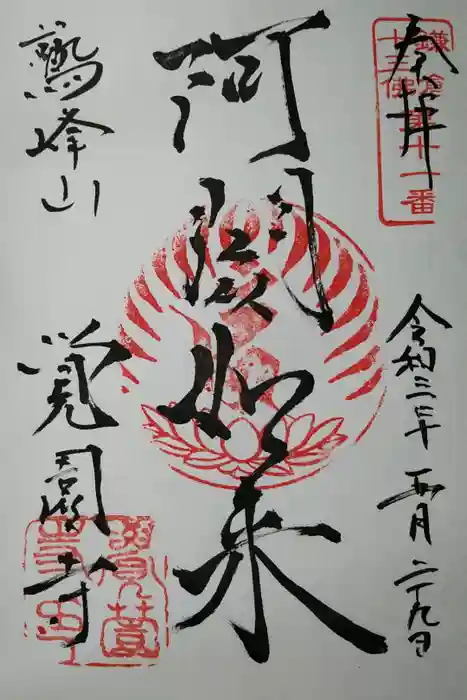 奉拝
鎌倉十三佛第十一番
令和三年五月二十九日
阿閦如来
鷲峰山
覚園寺